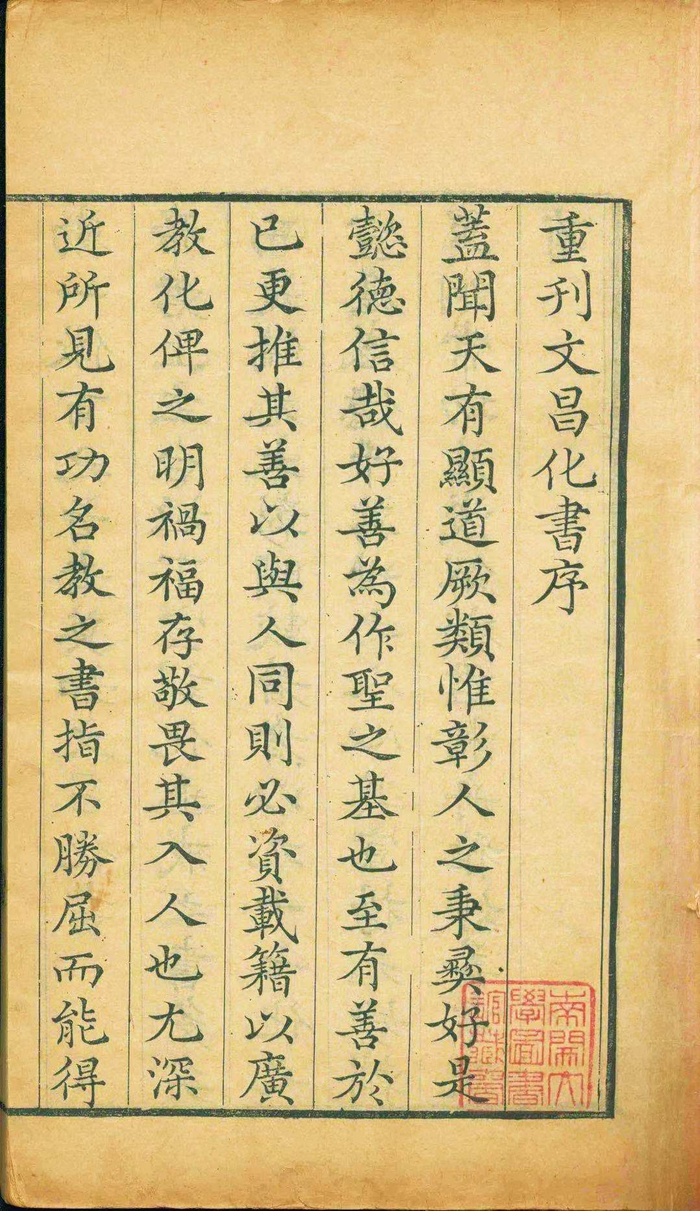 重刊文昌化書序
蓋聞天有顯道厥類惟彰人之秉彛好是
懿德信哉好善為作聖之基也至有善於
已更推其善以與人同則必資載籍以廣
教化俾之明禍福存敬畏其入人也尤深
近所見有功名教之書指不勝屈而能得
南開大
學圖書
館藏書